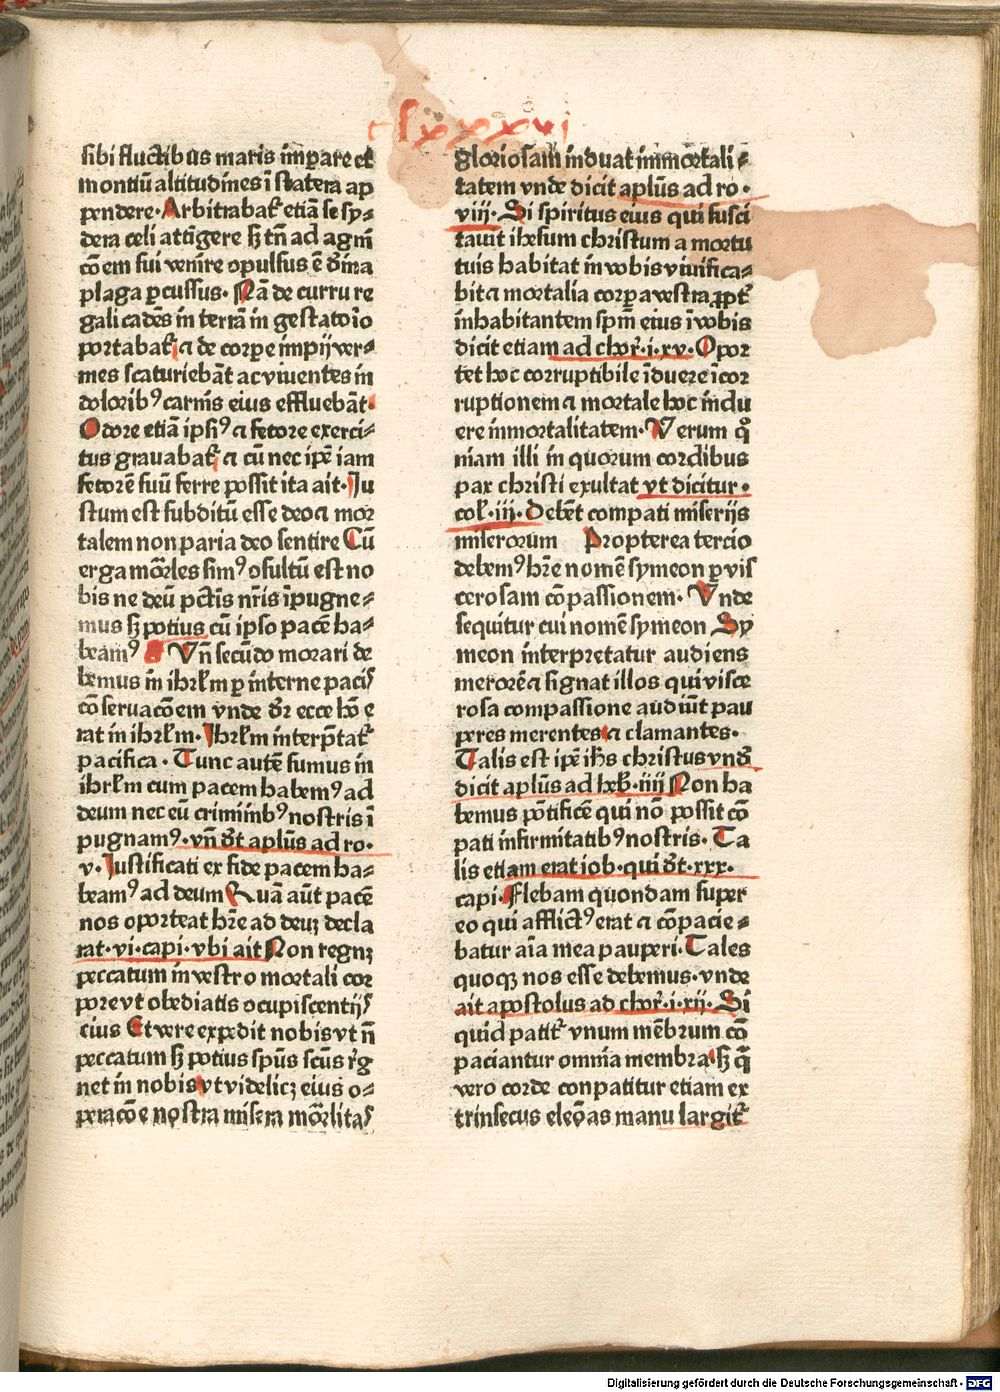 clxxxxvi
sibi fluctibus maris imꝑare et
montiū altitudines ī statera ap
pendere·Arbitrabat᷑ etiā se sy⸗
dera celi attīgere sꝫ tn̄ ad agni
cōem sui venire ↄpulsus ē diuīa
plaga ꝑcussus· Nā de curru re
gali cadēs in terrā in gestatoīo
portabat᷑ ⁊ de corpe impij ver⸗
mes scaturiebāt ac viuentes in
doloribꝰ carnis eius effluebāt·
Odore etiā ipsiꝰ ⁊ fetore exerci⸗
tus grauabat᷑ ⁊ cū nec ip̄e iam
fetorē suū ferre possit ita ait·Ju
stum est subditū esse deo ⁊ mor
talem non paria deo sentire Cū
erga mōrles simꝰ ↄsultū est no
bis ne deū pctīs nr̄is īpugne⸗
mus sꝫ potius cū ipso pacē ha⸗
beamꝰ Vn̄ secūdo morari de
bemus in ihrl̄m ꝑ interne pacis
cōseruacōem vnde dr̄ ecce hō e
rat in ihrl̄m·Jhrl̄m interp̄tat᷑
pacifica·Tunc autē sumus in
ihrl̄m cum pacem habemꝰ ad
deum nec eū criminibꝰ nostris ī
pugnamꝰ·vn̄ dt̄ apl̄us ad ro·
v·Justificati ex fide pacem ha⸗
beamꝰ ad deum Quā aūt pacē
nos oporteat hr̄e ad deuꝫ decla
rat·vi·capi·vbi ait Non regnꝫ
peccatum in vestro mortali cor
pore vt obediatis ↄcupiscentijs
eius Et vere expedit nobis vt n̄
peccatum sꝫ potius sp̄us sc̄us rḡ
net in nobis vt videlicꝫ eius o⸗
peracōe nostra misera mōrlitas
gloriosam induat inmortali⸗
tatem vnde dicit apl̄us ad ro·
viij·Si spiritus eius qui susci
tauit ihesum christum a mortu
tuis habitat in vobis viuifica⸗
bit ⁊ mortalia corpa vestra ꝓpt᷑
inhabitantem spm̄ eius ī vobis
dicit etiam ad chor᷑·i·xv·Opor
tet hoc corruptibile īduere īcor
ruptionem ⁊ mortale hoc indu
ere inmortalitatem·Verum qō
niam illi in quorum cordibus
pax christi exultat vt dicitur·
col᷑·iij·Debēt compati miserijs
miserorum Propterea tercio
debemꝰ hr̄e nomē symeon ꝑ vis
cerosam cōpassionem·Vnde
sequitur cui nomē symeon Sy
meon interpretatur audiens
merorē ⁊ signat illos qui visce
rosa compassione audiūt pau
peres merentes ⁊ clamantes·
Talis est ip̄e ih̄s christus vnd̄
dicit apl̄us ad heb᷑·iiij Non ha
bemus pōtificē qui nō possit cō
pati infirmitatibꝰ nostris·Ta
lis etiam erat iob·qui dt̄·xxx·
capi·Flebam quondam super
eo qui afflictꝰ erat ⁊ cōpacie⸗
batur aīa mea pauperi·Tales
quoqꝫ nos esse debemus·vnde
ait apostolus ad chor᷑·i·xij·Si
quid patit᷑ vnum mēbrum cō
paciantur omnia membra·sꝫ q̄
vero corde conpatitur etiam ex
trinsecus eleōas manu largit᷑
Digitalisierung gefördert durch die Deutsche Forschungsgemeinschaft - DFG